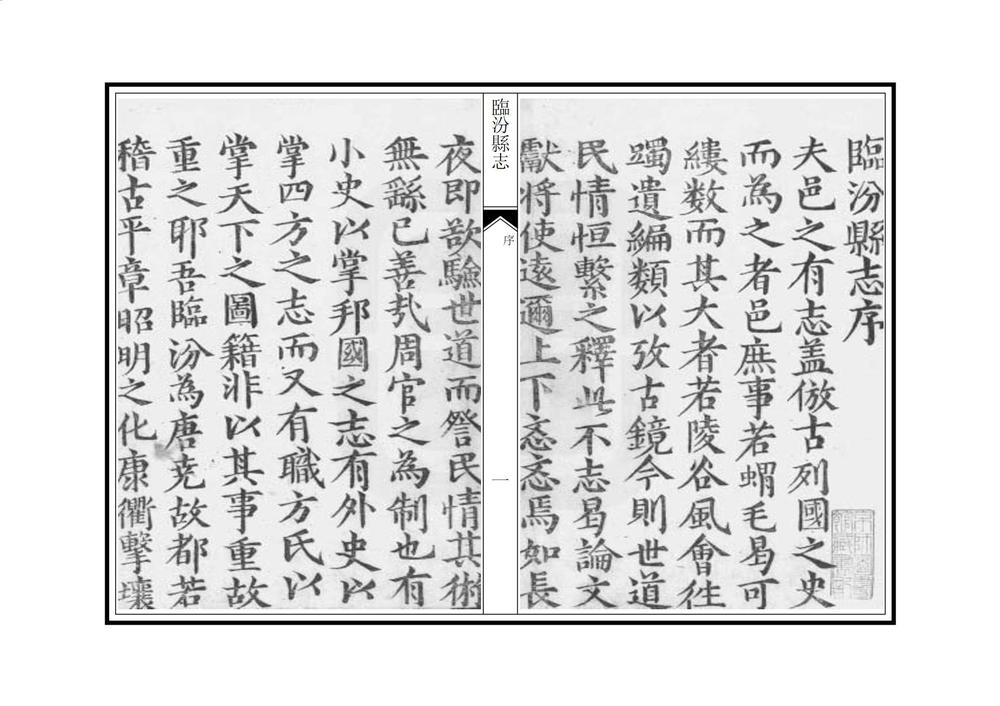 臨汾縣志序
夫邑之有志盖倣古列國之史
而為之者邑庶事若蝟毛曷可
縷数而其大者若陵谷風會徃
躅遺編類以攷古鏡今則世道
民情恒繫之釋此不志曷論文
獻将使遠邇上下忞忞焉如長
臨汾縣志
序
一
夜即欲驗世道而詧民情其術
無繇已善㢤周官之為制也有
小史以掌邦國之志有外史以
掌四方之志而又有職方氏以
掌天下之圖籍非以其事重故
重之耶吾臨汾為唐尭故都若
稽古平章昭明之化康衢擊壤